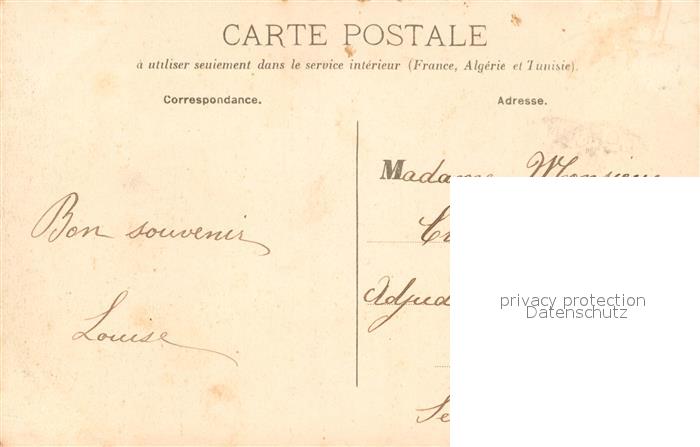 CARTE POSTALE
à utiliser seulement dans le service intérieur (France, Algérie et Tunisie).
Correspondance.
Adresse.
Bon souvenir
Louise
Madame Monsieur
privacy protection
Datenschutz